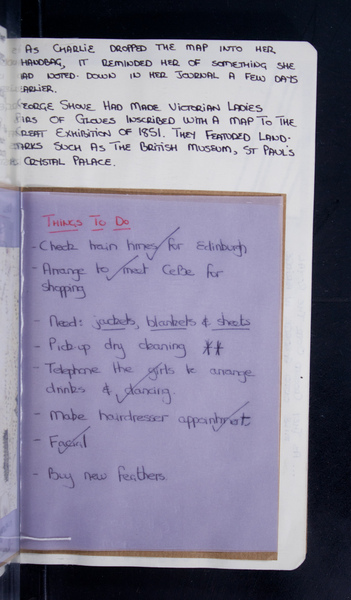 As Charlie dropped the map into her
handbag, it reminded her of something she
had noted down in her journal a few days
earlier.
George Shove had made Victorian ladies
pairs of gloves inscribed with a map to the
Great Exhibition of 1851. They featured land-
marks such as the British Museum, St Paul's
& Crystal Palace.
Things To Do
- Check train times for Edinburgh
- Arrange to meet CeBe for
shopping
- Need: jackets, blankets & sheets
- Pick up dry cleaning **
- Telephone the girls to arrange
drinks & dancing.
- Make hairdresser appointment
- Facial
- Buy new feathers.